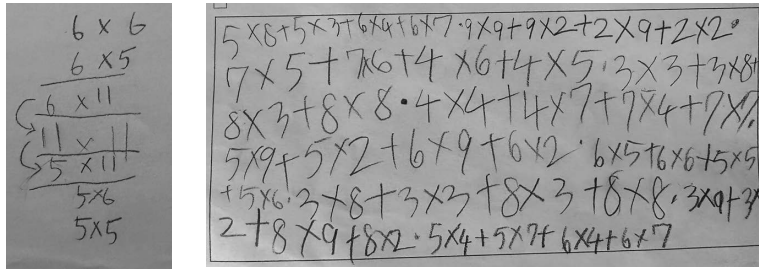 6 × 6
6 × 5
6 × 11
11 × 11
5 × 11
5×6
5×5
5×8+5×3+6×4+6×7·9×9+9×2+2×9+2×2·
7×5+7×6+4×6+4×5·3×3+3×8+
8×3+8×8·4×4+4×7+7×4+7×7.
5×9+5×2+6×9+6×2·6×5+6×6+5×5
+5×6·3×8+3×3+8×3+8×8·3×9+3×
2+8×9+8×2·5×4+5×7+6×4+6×7